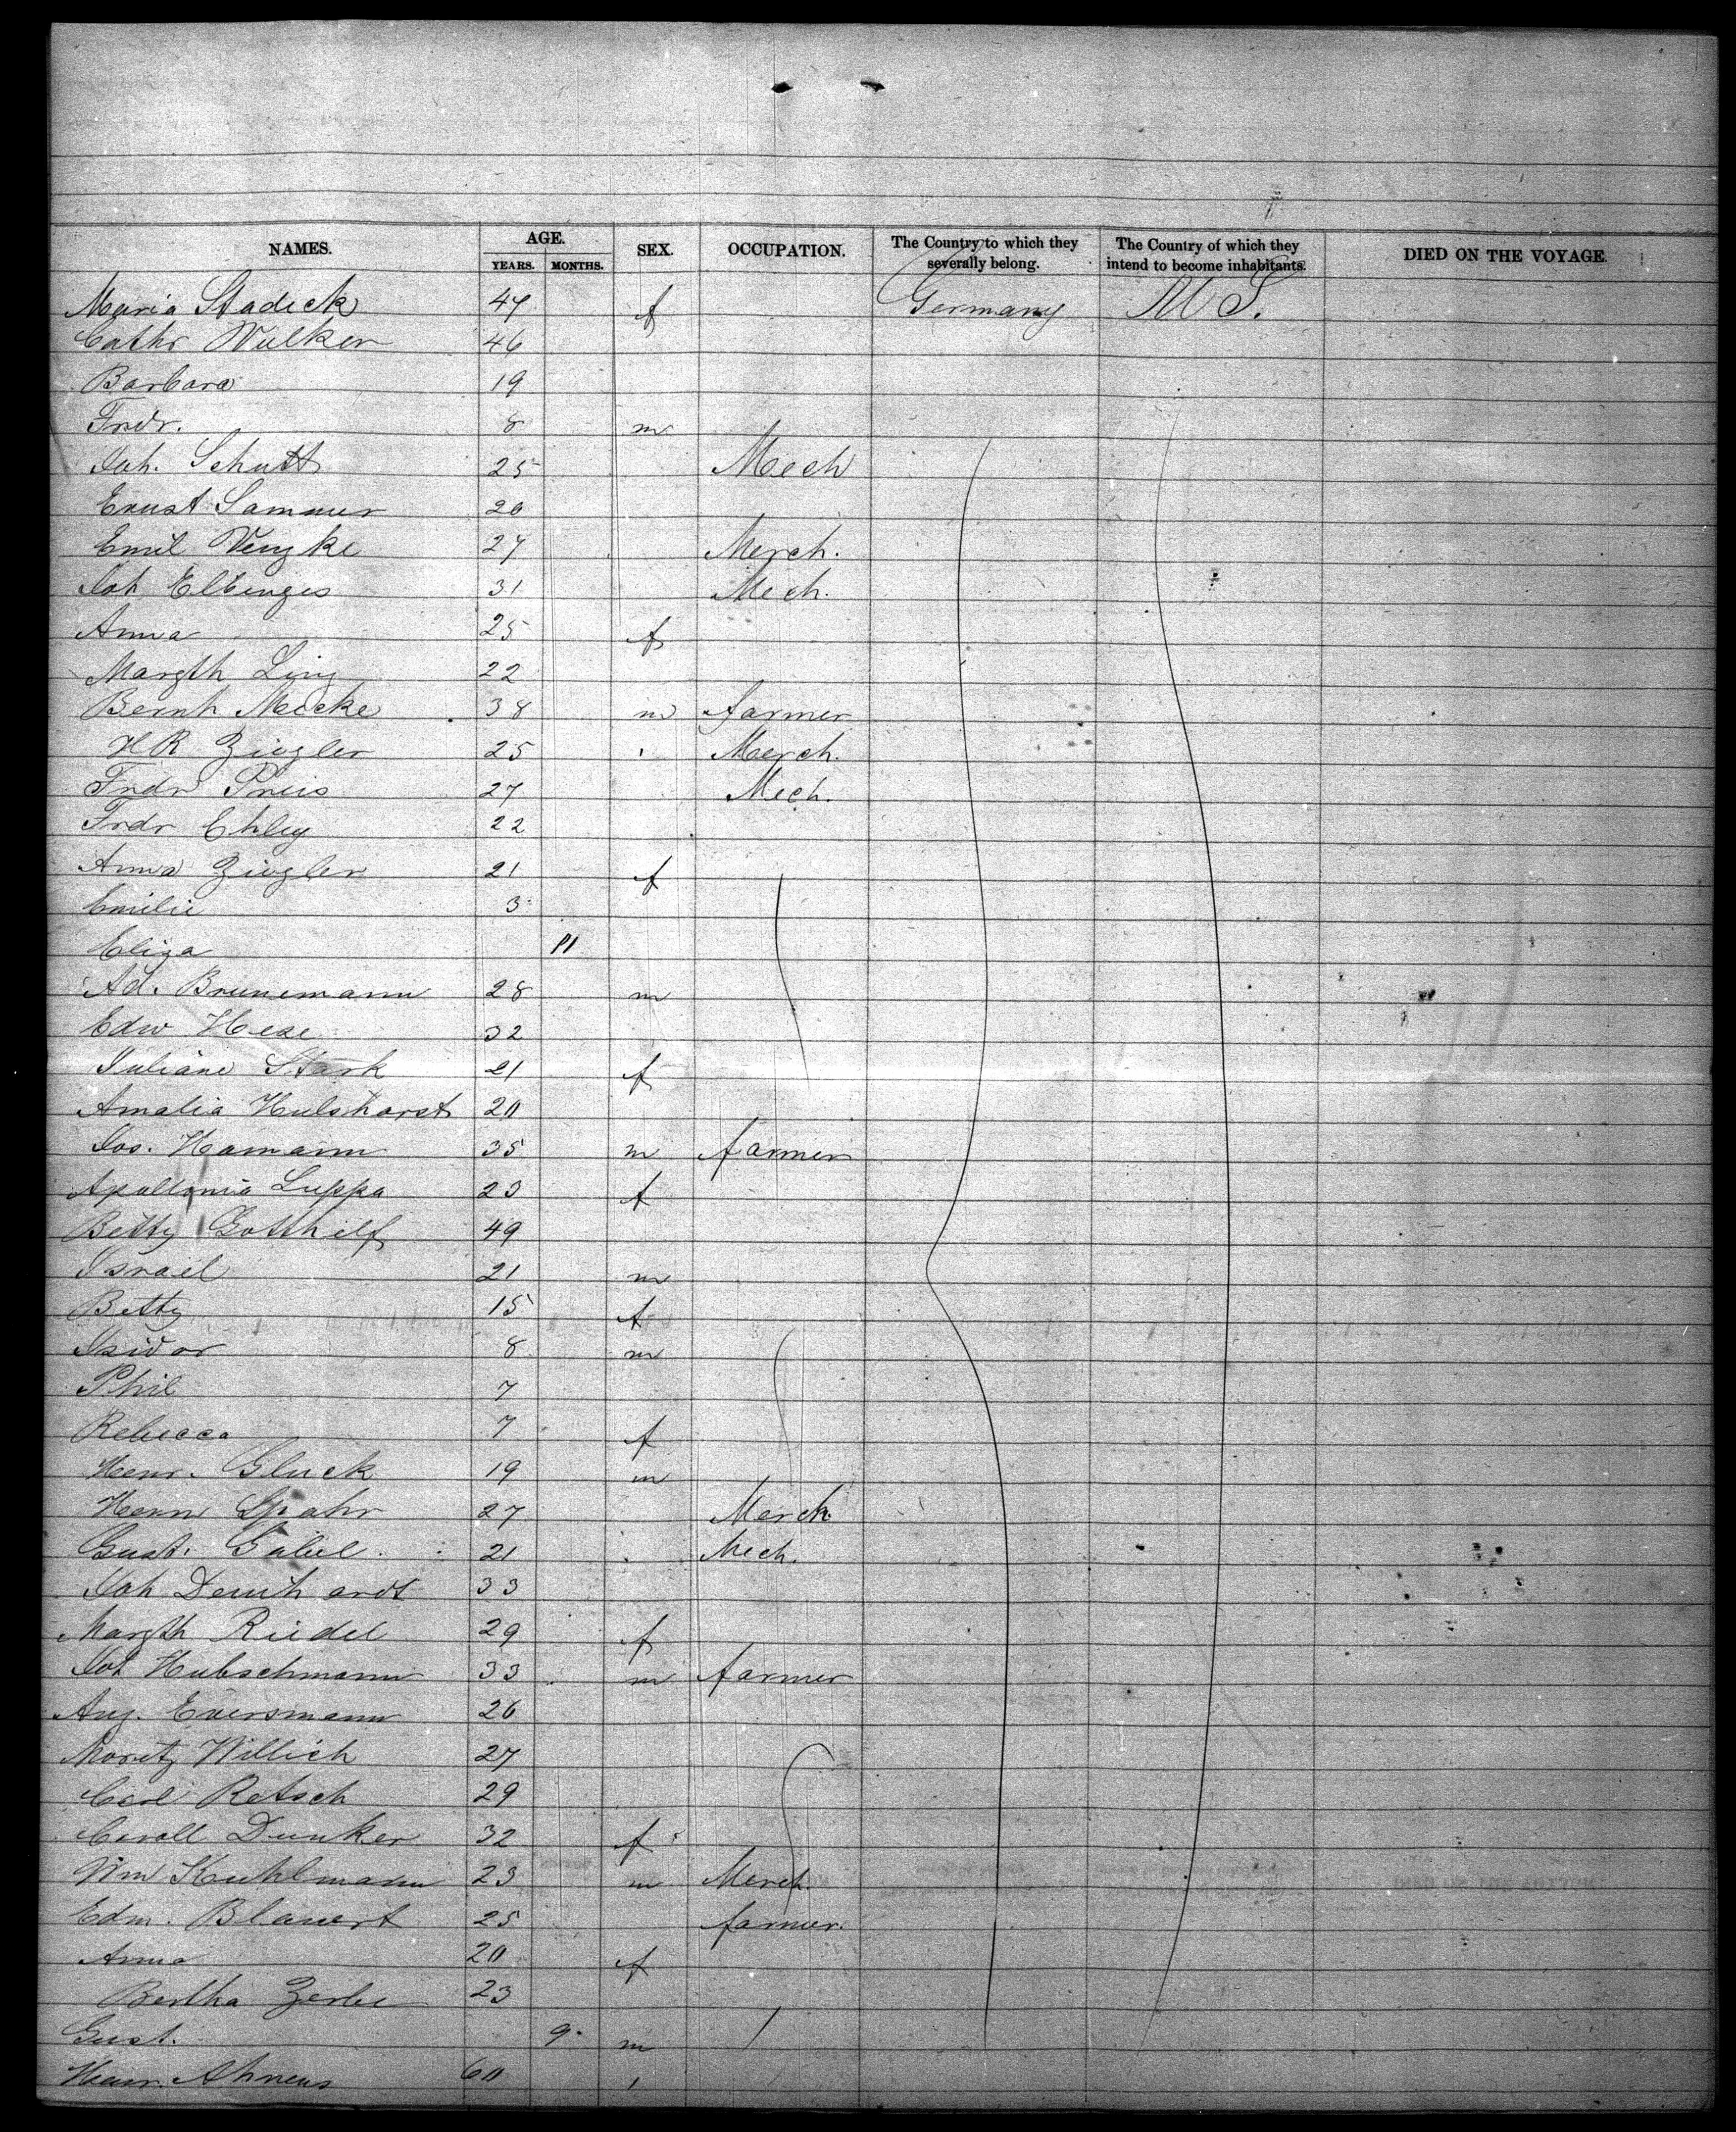 NAMES. AGE. SEX. OCCUPATION. The Country to which they severally belong. The Country of which they intend to become inhabitants. DIED ON THE VOYAGE.
YEARS. MONTHS.
Maria Stadeck 47 f Germany U S.
Cathr Wulker 46
Barbara 19
Fredr. 8 m
Joh. Schutt 25 Mech
Ernst Sammer 20
Emil Venzke 27 Merch.
Joh Elbinges 31 Mech.
Anna 25 f
Margth Ling 22
Bernh Mecke 38 m farmer
H R Ziegler 25 Merch.
Fredr Preis 27 Mech.
Fredr Chley 22
Anna Ziegler 21 f
Emilie 3
Eliza 11
Ad. Brunemann 28 m
Edw Hese 32
Juliane Stark 21 f
Amalia Hulshorst 20
Jos. Hamann 35 m farmer
Apollonia Luppa 23 f
Betty Gotthilf 49
Israel 21 m
Betty 15 f
Isidor 8 m
Phil 7
Rebecca 7 f
Henr. Gluck 19 m
Herm Spahr 27 Merch
Gust. Gabel 21 Mech.
Joh Demhardt 33
Margth Riedel 29 f
Joh Hubschmann 33 m farmer
Aug. Eversmann 26
Moritz Willich 27
Carl Retsch 29
Caroll Dunker 32 f
Wm Kuhlmann 23 m Merch.
Edm. Blauert 25 farmer.
Anna 20 f
Bertha Zerbe 23
Gust. 9 m
Henr. Ahrens 60